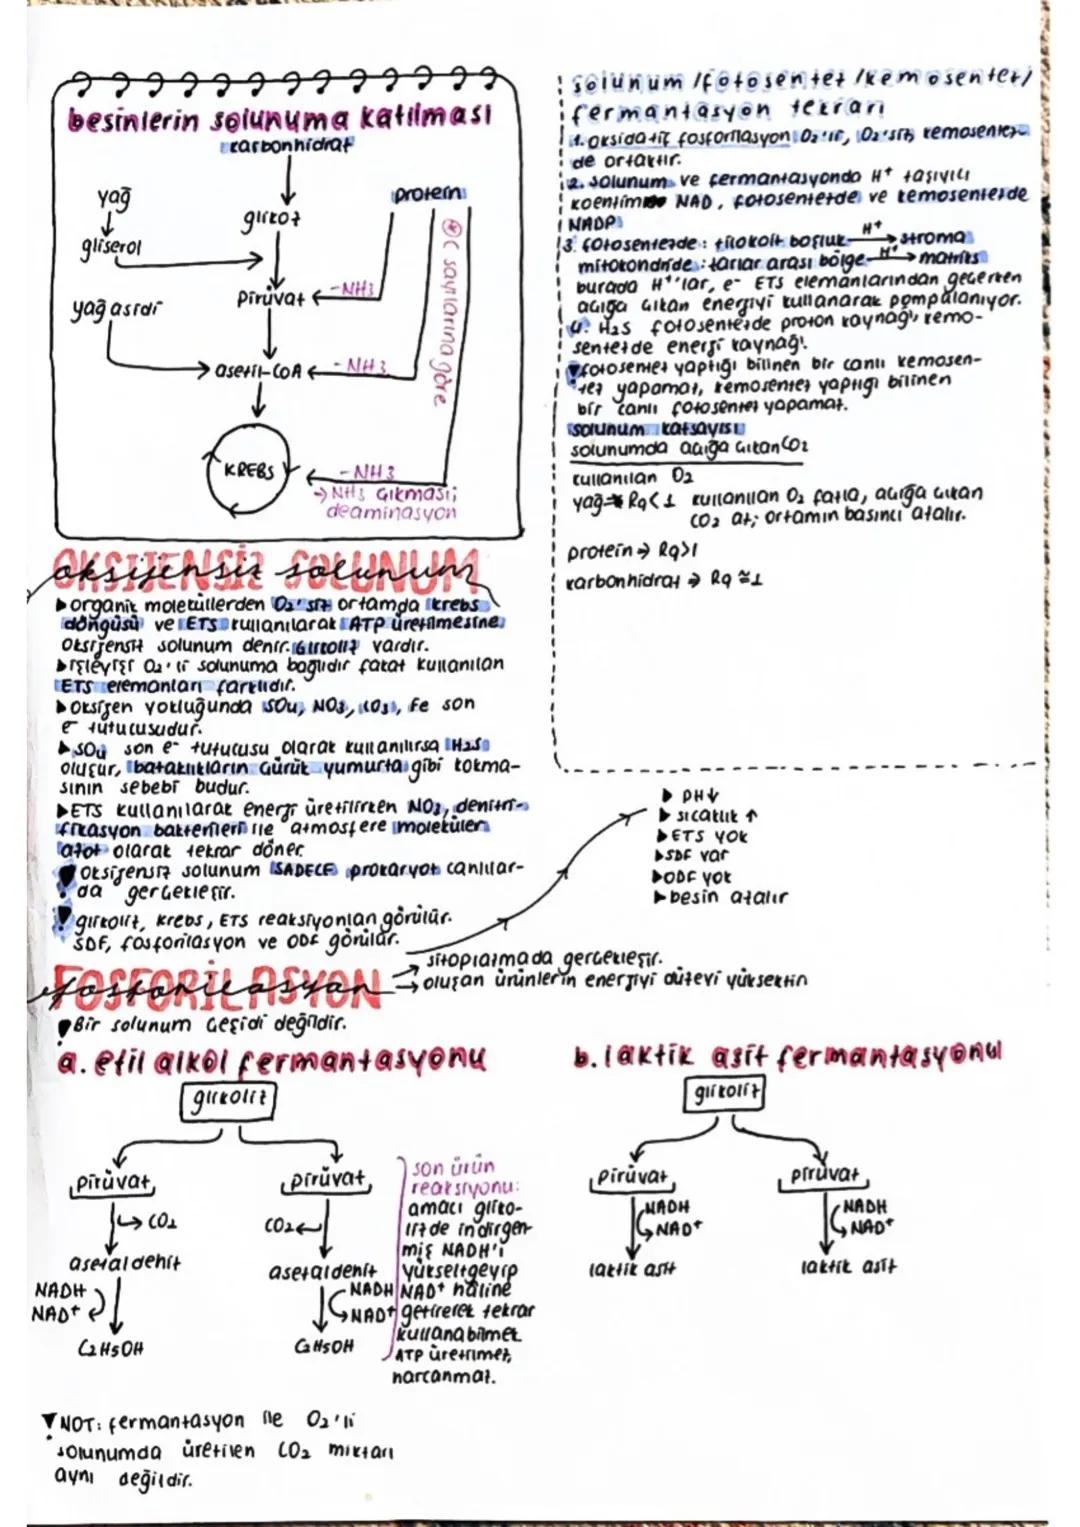 besinlerin solunuma katılması
karbonhidrat
yağ
gliserol
yağ asidi
glikoz
pirüvat
asetil-CoA
KREBS
protein
-NH3
-NH3
-NH3
* C sayılarına göre
→ NH3 çıkması;
deaminasyon
solunum/fotosentez/kemosentez/
fermantasyon tekrarı
1. oksidatif fosforilasyon O2'li, O2'siz, kemosentez-
de ortaktır.
2. solunum ve fermantasyonda H+ taşıyıcı
koenzim NAD, fotosentezde ve kemosentezde
NADP
3. fotosentezde: tilokoit boşluk H+→ stroma
mitokondride: zarlar arası bölge H+→ matriks
burada H+'lar, e- ETS elemanlarından geçerken
açığa çıkan enerjiyi kullanarak pompalanıyor.
4. H2S fotosentezde proton kaynağı, kemo-
sentezde enerji kaynağı.
fotosentez yaptığı bilinen bir canlı kemosen-
tez yapamaz, kemosentez yaptığı bilinen
bir canlı fotosentez yapamaz.
solunum katsayısı
solunumda açığa çıkan CO2
kullanılan O2
yağ→ RQ<1 kullanılan O2 fazla, açığa çıkan
CO2 az; ortamın basıncı azalır.
protein → RQ>1
karbonhidrat → RQ ≅1
OKSİJENSİZ SOLUNUM
oksijensiz solunum
▶organik moleküllerden O2'siz ortamda krebs
döngüsü ve ETS kullanılarak ATP üretilmesine
oksijensiz solunum denir. Glikoliz vardır.
▶işleyişi O2'li solunuma bağlıdır fakat kullanılan
ETS elemanları farklıdır.
▶oksijen yokluğunda SO4, NO3, CO3, Fe son
e- tutucusudur.
▶SO4 son e- tutucusu olarak kullanılırsa H2S
oluşur, bataklıkların çürük yumurta gibi kokma-
sının sebebi budur.
▶ETS kullanılarak enerji üretilirken NO3, denitri-
fikasyon bakterileri ile atmosfere moleküler
azot olarak tekrar döner.
! oksijensiz solunum SADECE prokaryot canlılar-
da gerçekleşir.
! glikoliz, krebs, ETS reaksiyonları görülür.
SDF, fosforilasyon ve ODF görülür.
▶ PH↓
▶ sıcaklık ↑
▶ETS yok
▶SDF var
▶ODF yok
▶besin azalır
FOSFORİLASYON
fosforilasyon
→ sitoplazmada gerçekleşir.
→ oluşan ürünlerin enerjiyi düzeyi yüksektir
! Bir solunum çeşidi değildir.
a. etil alkol fermantasyonu
glikoliz
pirüvat
pirüvat
CO2
CO2
asetaldehit
asetaldehit
NADH
NAD+
NADH
NAD+
C2H5OH
C2H5OH
son ürün
reaksiyonu:
amacı gliko-
lizde indirgen-
miş NADH'ı
yükseltgeyip
NAD+ haline
getirerek tekrar
kullanabilmek
ATP üretilmez,
harcanmaz.
b. laktik asit fermantasyonu
glikoliz
pirüvat
pirüvat
NADH
NAD+
NADH
NAD+
laktik asit
laktik asit
! NOT: fermantasyon ile O2'li
solunumda üretilen CO2 miktarı
aynı değildir.